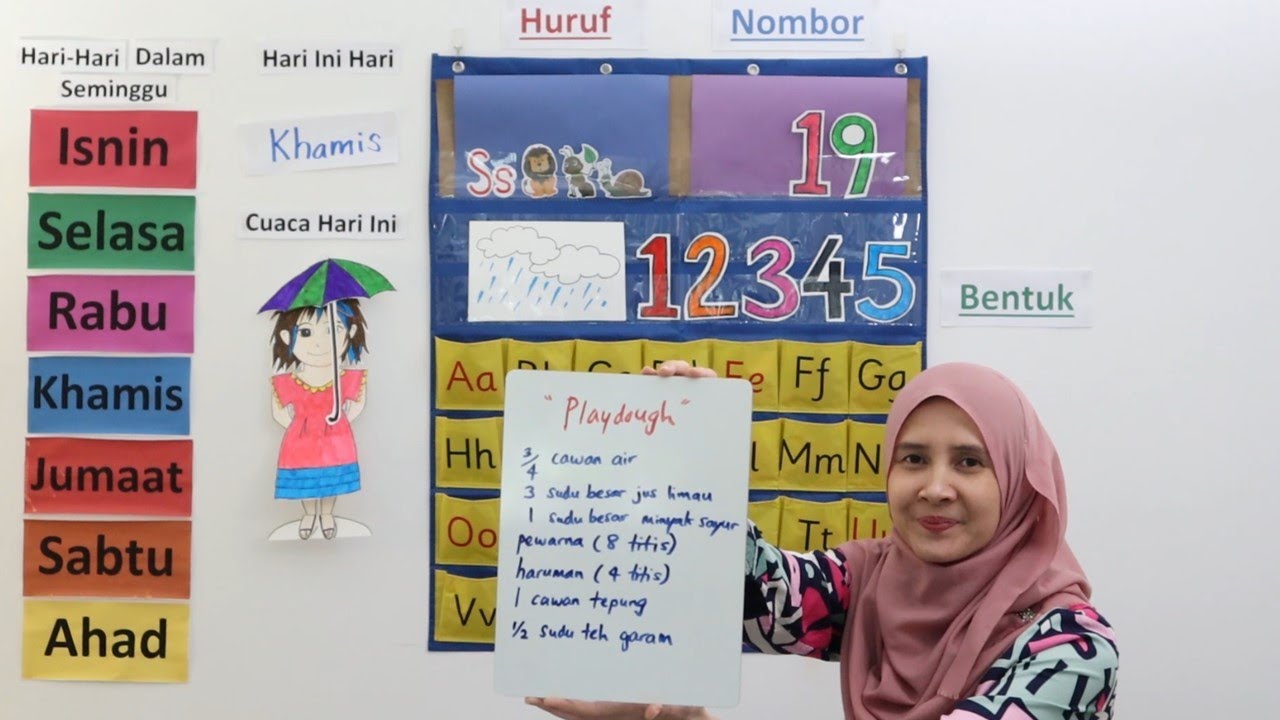 Huruf
Nombor
Hari-Hari Dalam
Seminggu
Isnin
Selasa
Rabu
Khamis
Jumaat
Sabtu
Ahad
Hari Ini Hari
Khamis
Cuaca Hari Ini
Ss
19
12345
Bentuk
Aa
Ee Ff Gg
Hh
Mm
Oo
Tt
Vv
"Playdough"
3/4 cawan air
3 sudu besar jus limau
1 sudu besar minyak sayur
pewarna (8 titis)
haruman (4 titis)
1 cawan tepung
1/2 sudu teh garam